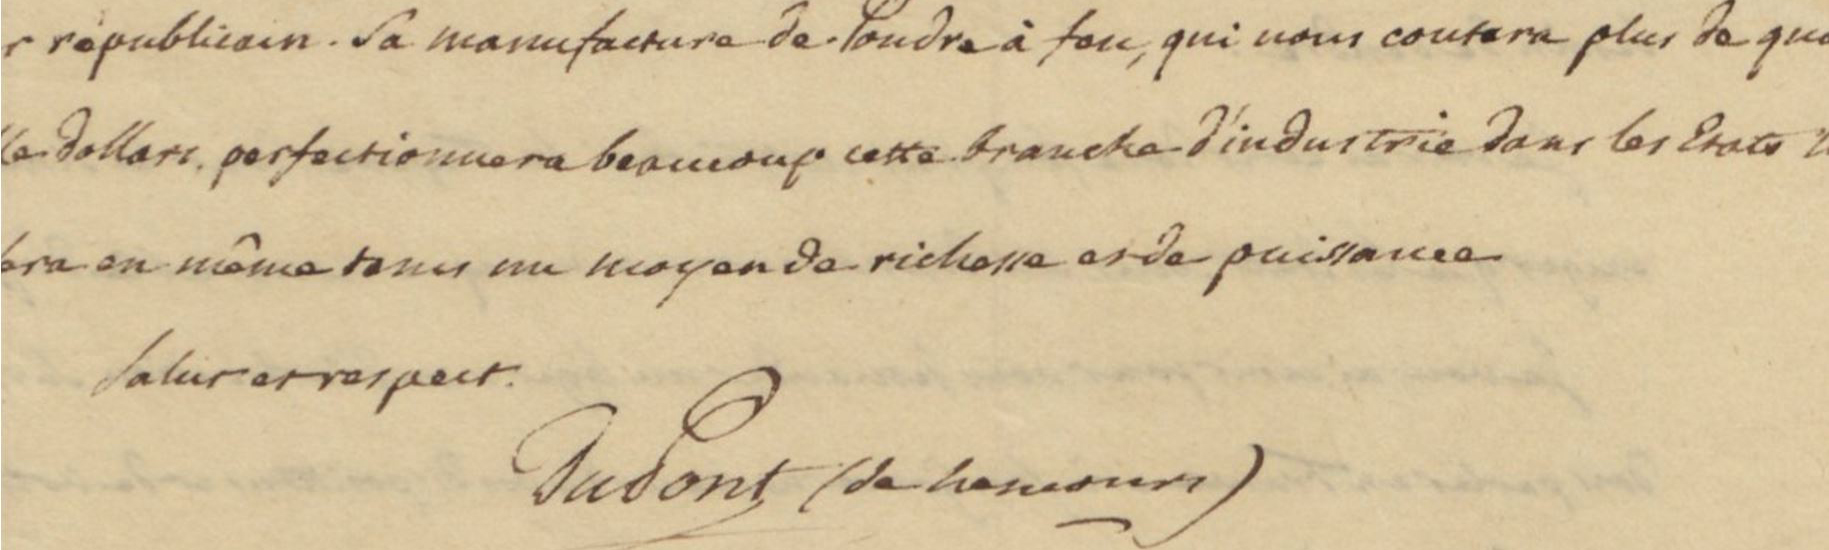 r républicain. Sa manufacture de Poudre à feu, qui nous coutera plus de qua
lle dollars, perfectionnera beaucoup cette branche d'industrie dans les Etats U
sera en même tems un moyen de richesse et de puissance
Salut et respect.
DuPont (de Nemours)